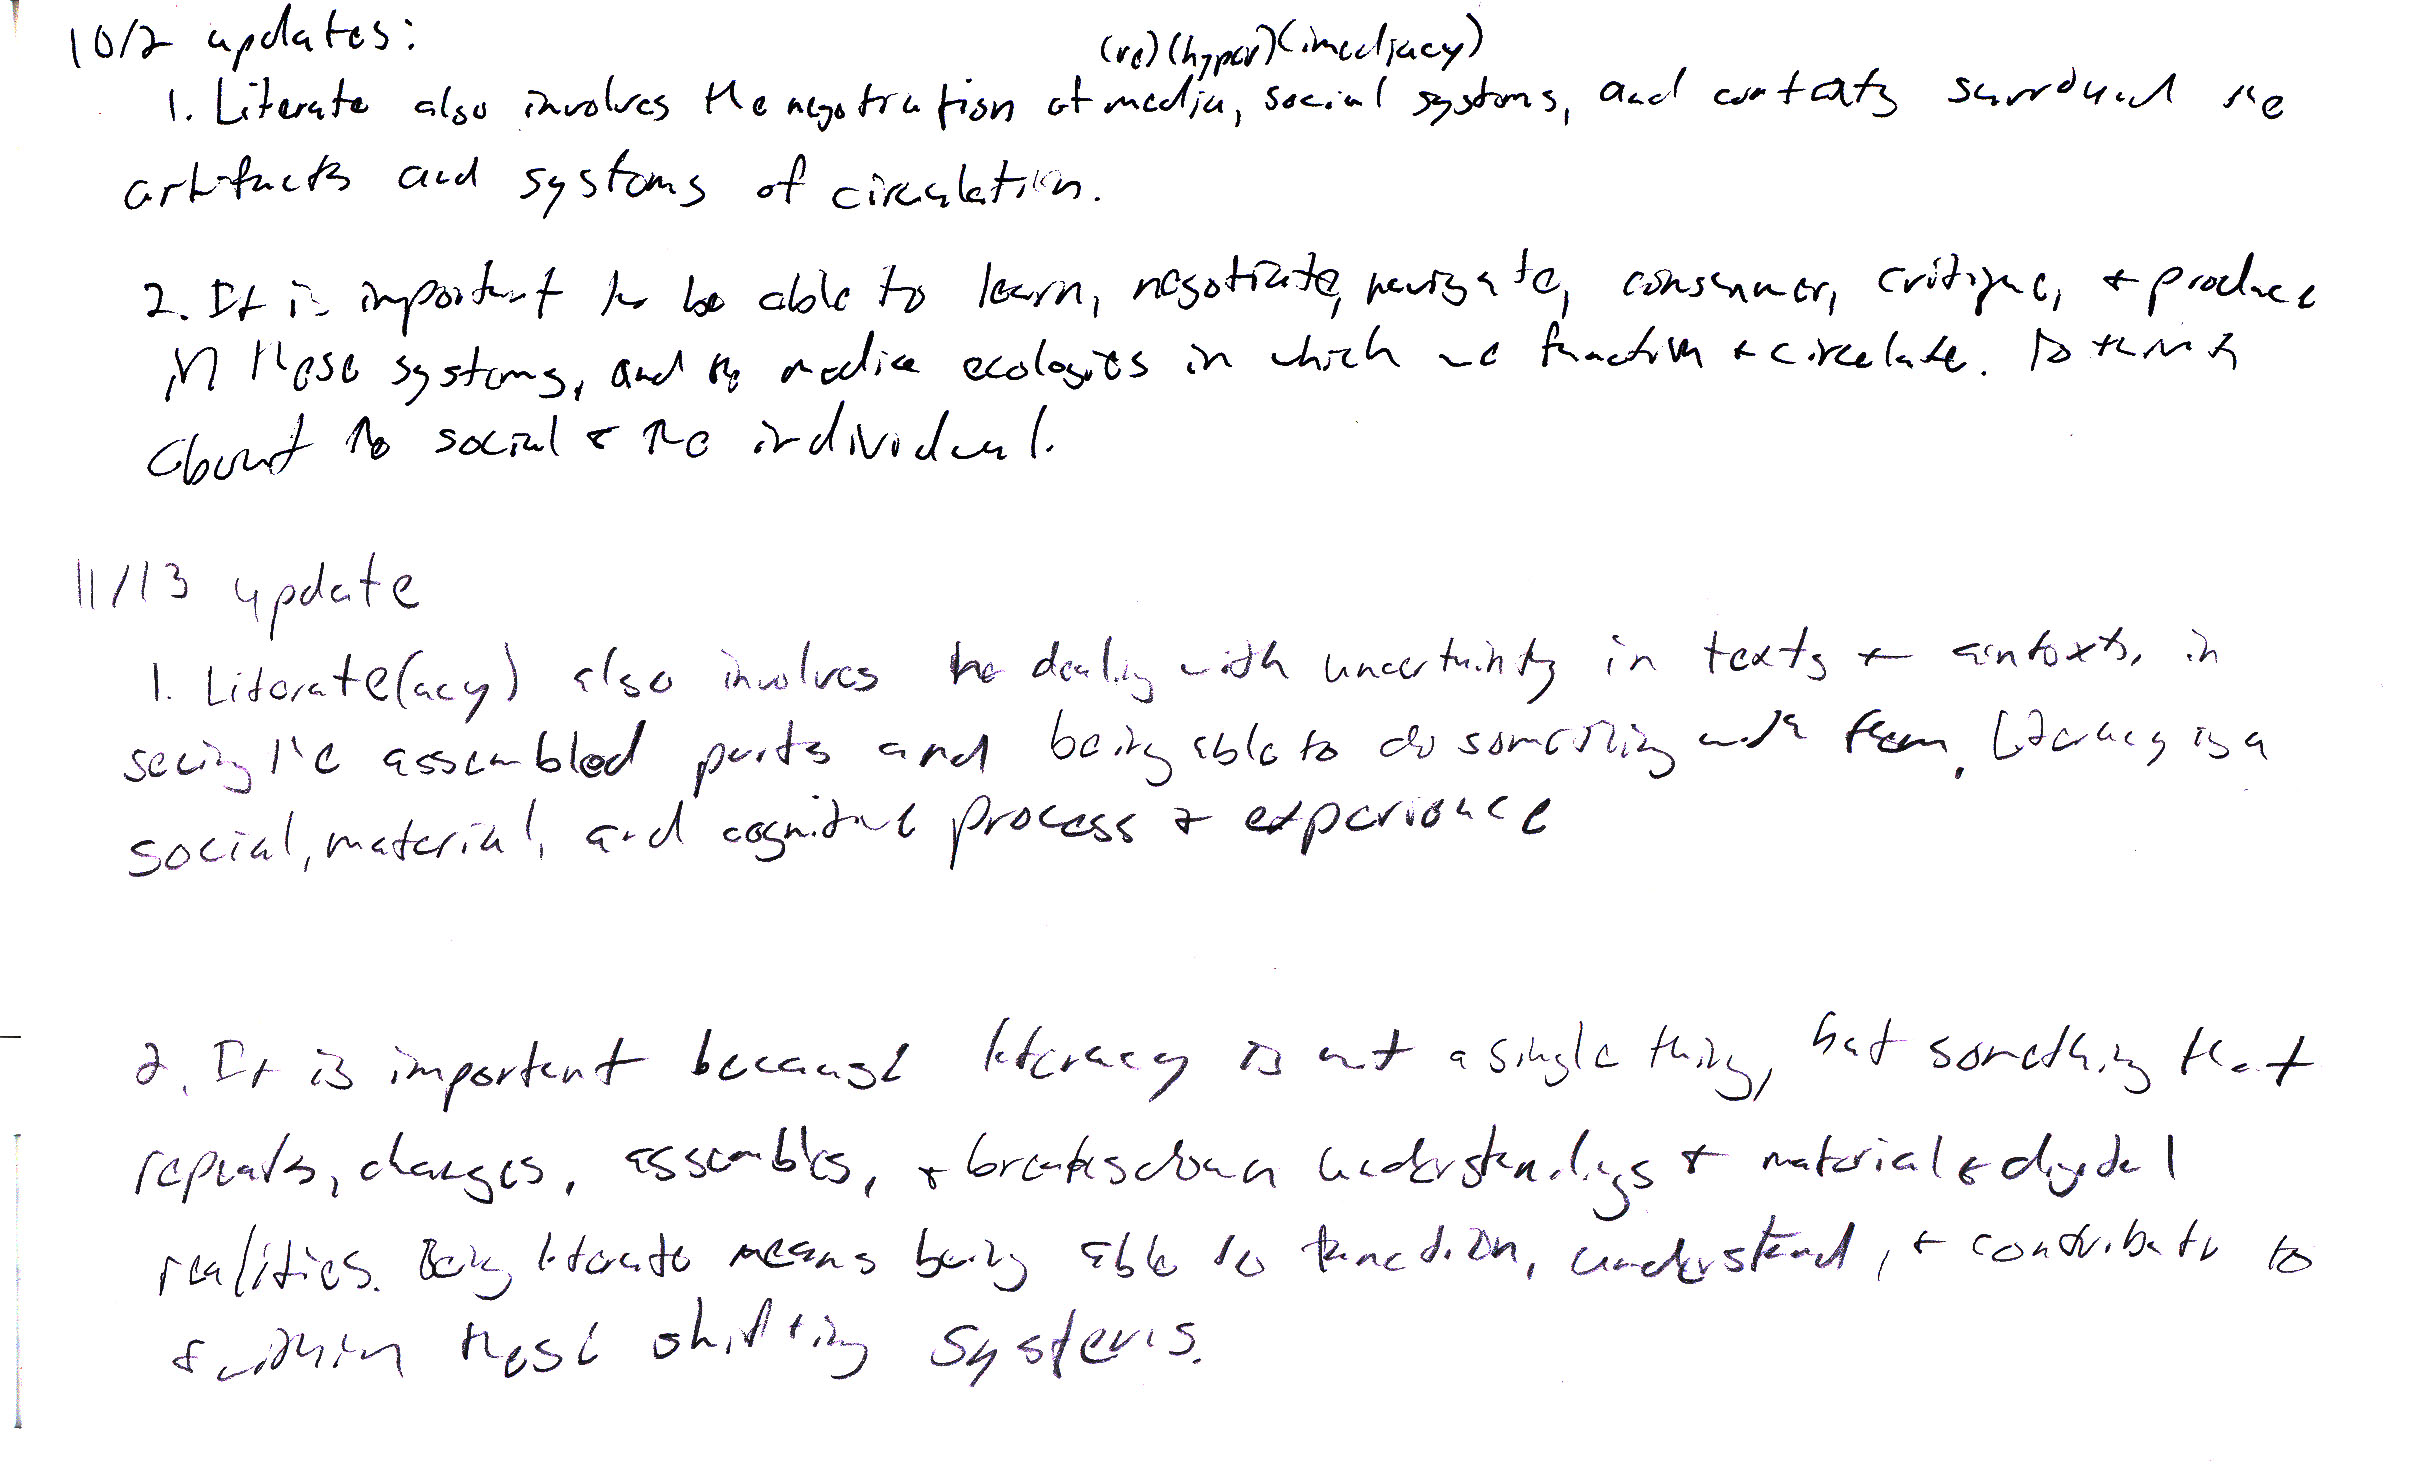 10/2 updates:
(re)(hyper)(imediacy)
1. Literate also involves the negotiation of media, social systems, and contexts surround the
artifacts and systems of circulation.
2. It is important to be able to learn, negotiate, navigate, consumer, critique, + produce
in these systems, and the media ecologies in which we function + circulate. To think
about the social & the individual.
11/13 update
1. Literate(acy) also involves the dealing with uncertainty in texts + contexts, in
seeing the assembled parts and being able to do something with them. Literacy is a
social, material, and cognitive process & experience
2. It is important because literacy is not a single thing, but something that
repeats, changes, assembles, + breaks down understandings + material & digital
realities. Being literate means being able to function, understand, + contribute to
& within these shifting systems.